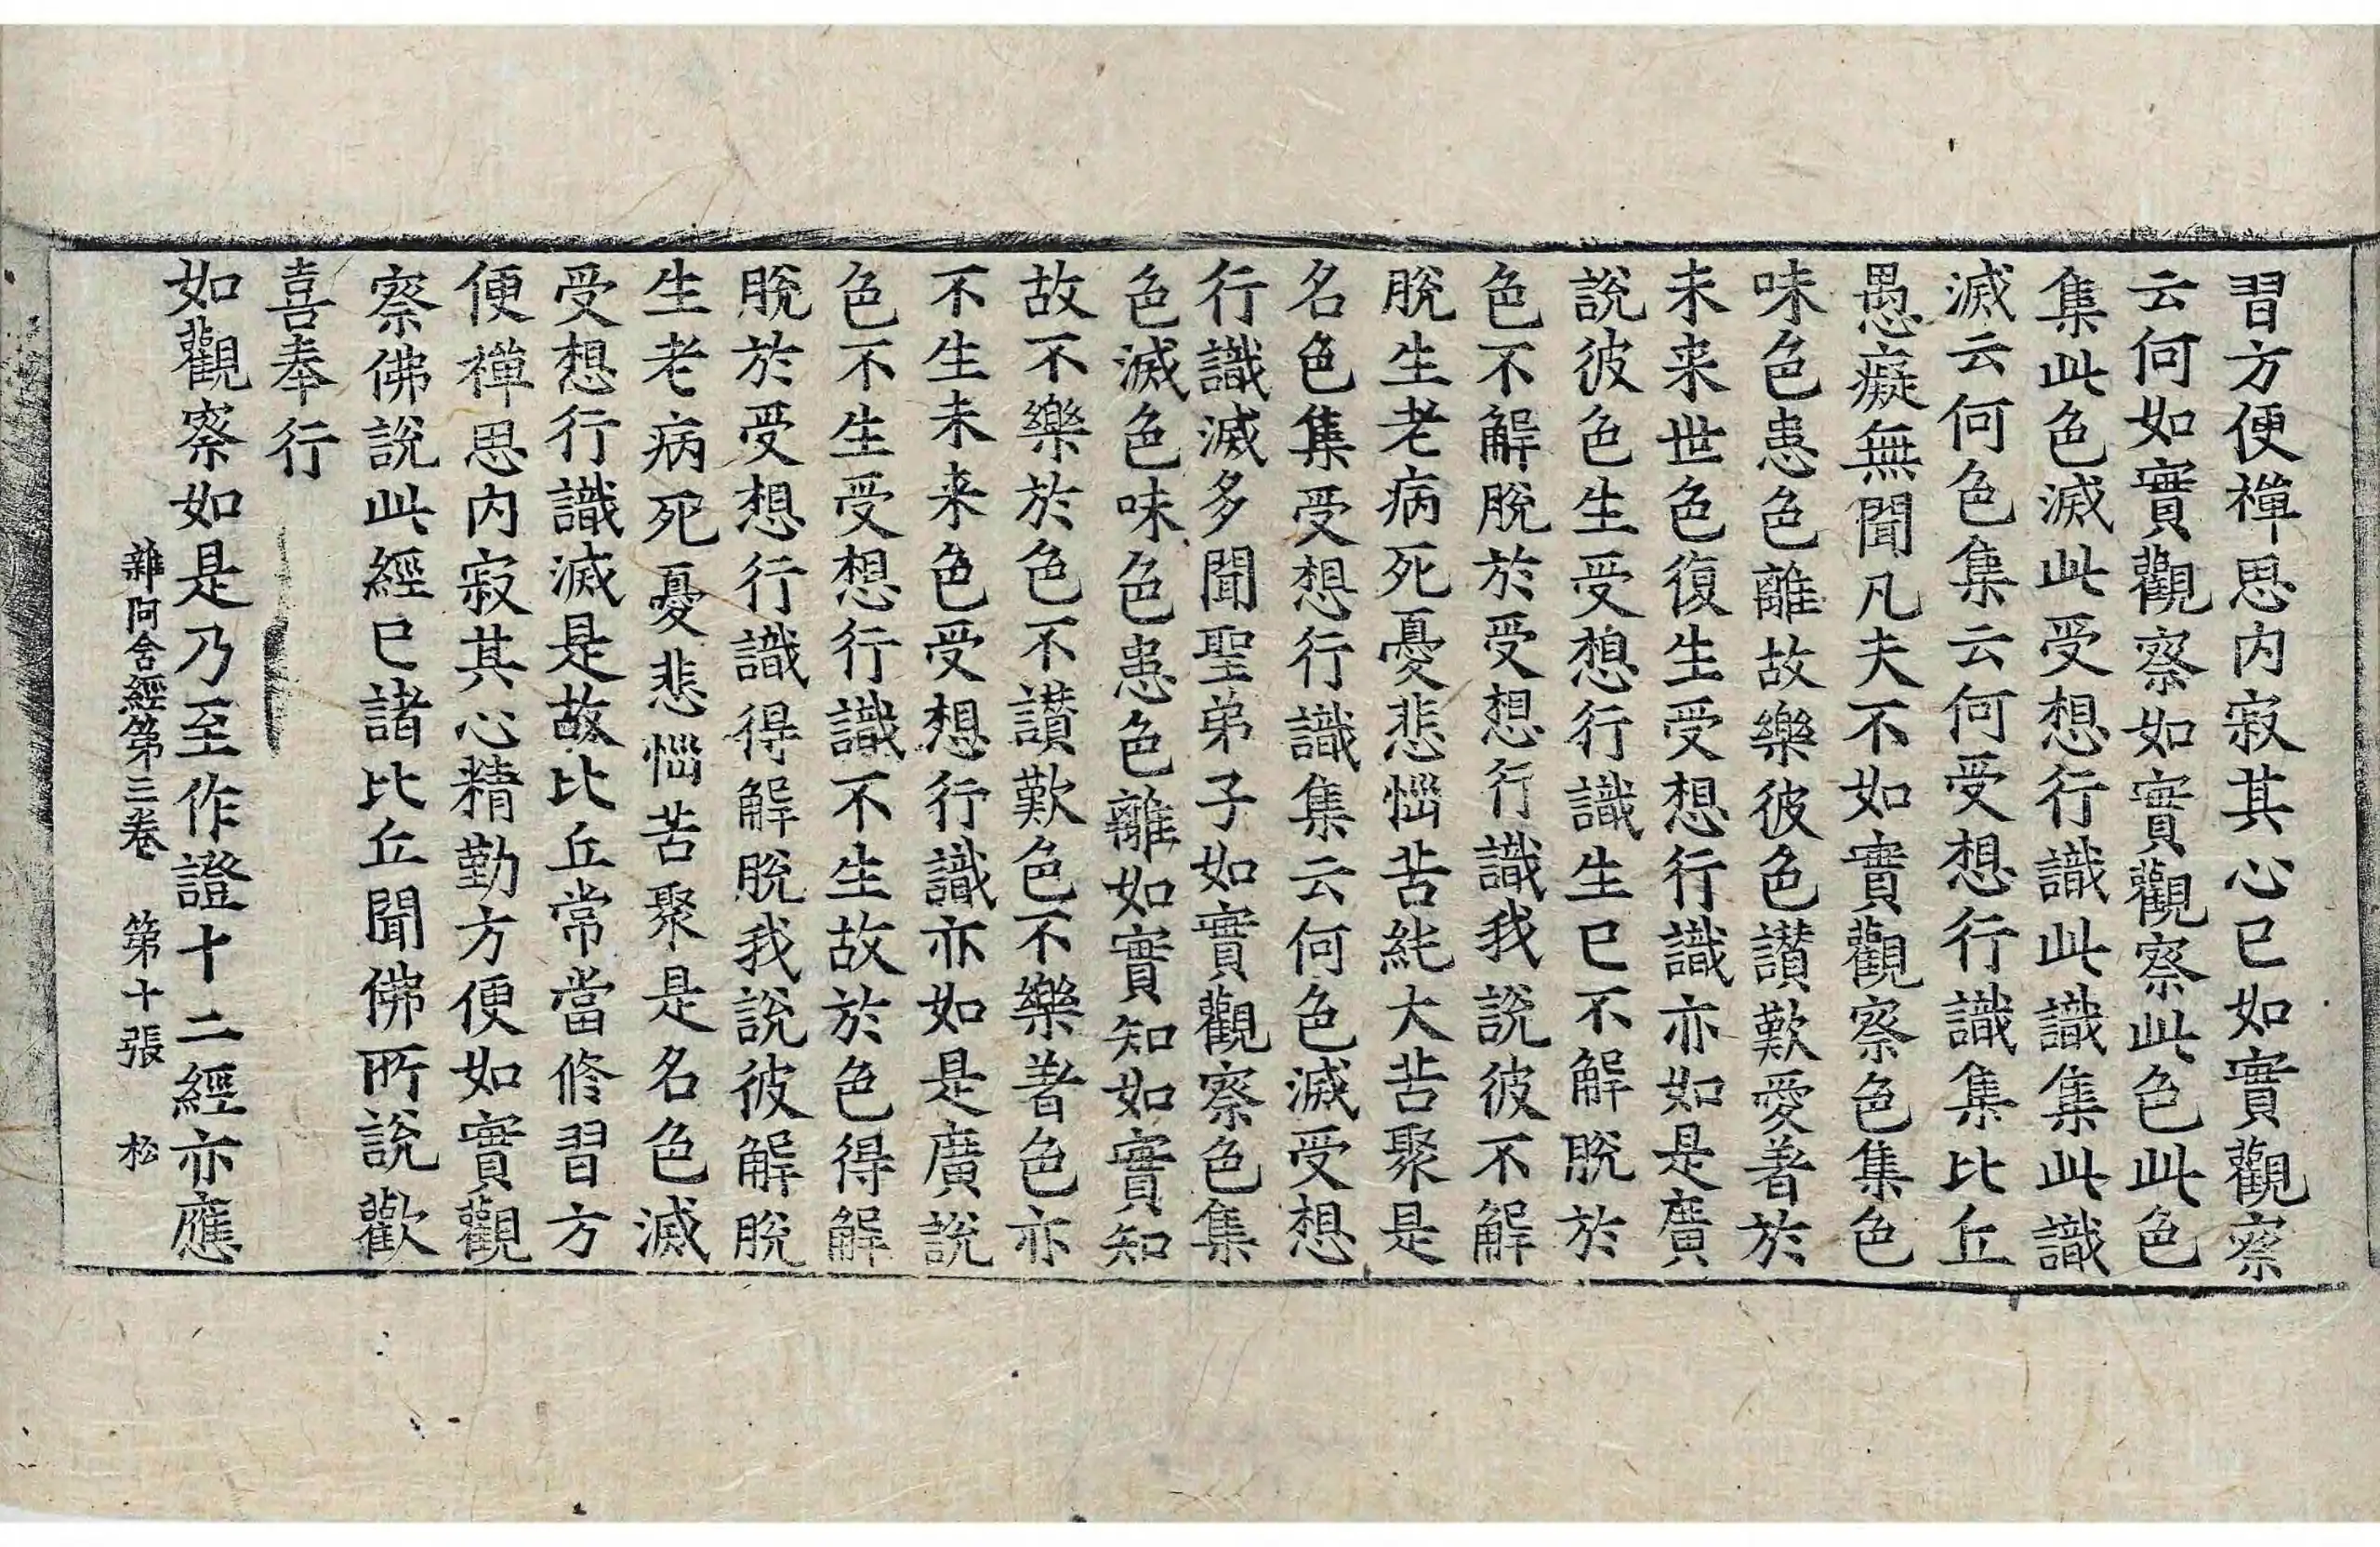 習方便禪思内寂其心已如實觀察
云何如實觀察如實觀察此色此色
集此色滅此受想行識此識集此識
滅云何色集云何受想行識集比丘
愚癡無聞凡夫不如實觀察色集色
味色患色離故樂彼色讃歎愛著於
未来世色復生受想行識亦如是廣
說彼色生受想行識生已不解脫於
色不解脫於受想行識我說彼不解
脫生老病死憂悲惱苦純大苦聚是
名色集受想行識集云何色滅受想
行識滅多聞聖弟子如實觀察色集
色滅色味色患色離如實知如實知
故不樂於色不讃歎色不樂著色亦
不生未来色受想行識亦如是廣說
色不生受想行識不生故於色得解
脫於受想行識得解脫我說彼解脫
生老病死憂悲惱苦聚是名色滅
受想行識滅是故比丘常當修習方
便禪思内寂其心精勤方便如實觀
察佛說此經已諸比丘聞佛所說歡
喜奉行
如觀察如是乃至作證十二經亦應
雜阿含經第三卷 第十張 松